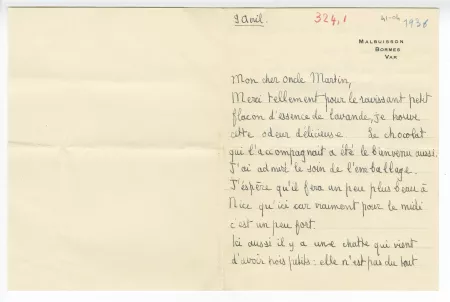 9 Avril.
324,1
41-04
1938
MALBUISSON
BORMES
VAR
Mon cher oncle Martin,
Merci tellement pour le ravissant petit
flacon d'essence de lavande, je trouve
cette odeur délicieuse Le chocolat
qui l'accompagnait a été le bienvenu aussi.
J'ai admiré le soin de l'emballage.
J'espère qu'il fera un peu plus beau à
Nice qu'ici car vraiment pour le midi
c'est un peu fort.
Ici aussi il y a une chatte qui vient
d'avoir trois petits : elle n'est pas du tout